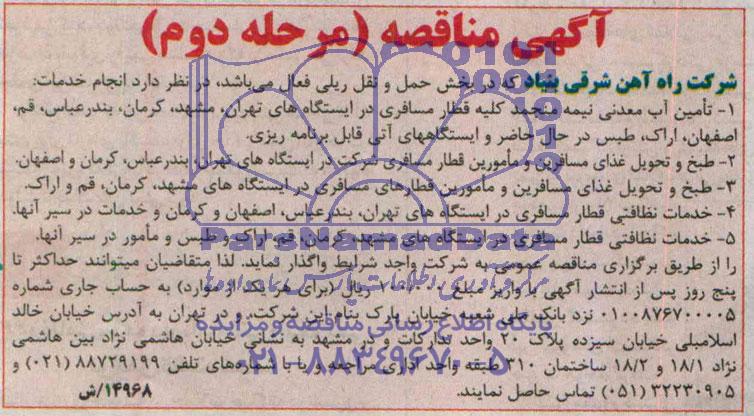 آگهی مناقصه (مرحله دوم)
شرکت راه آهن شرقی بنیاد که در بخش حمل و نقل ریلی فعال می‌باشد، در نظر دارد انجام خدمات:
۱- تأمین آب معدنی نیمه منجمد کلیه قطار مسافری در ایستگاه های تهران، مشهد، کرمان، بندرعباس، قم،
اصفهان، اراک، طبس در حال حاضر و ایستگاههای آتی قابل برنامه ریزی.
۲- طبخ و تحویل غذای مسافرین و مأمورین قطار مسافری شرکت در ایستگاه های تهران، بندرعباس، کرمان و اصفهان.
۳- طبخ و تحویل غذای مسافرین و مأمورین قطارهای مسافری در ایستگاه های مشهد، کرمان، قم و اراک.
۴- خدمات نظافتی قطار مسافری در ایستگاه های تهران، بندرعباس، اصفهان و کرمان و خدمات در سیر آنها.
۵- خدمات نظافتی قطار مسافری در ایستگاه های مشهد، کرمان، قم، اراک و طبس و مأمور در سیر آنها.
را از طریق برگزاری مناقصه عمومی به شرکت واجد شرایط واگذار نماید. لذا متقاضیان میتوانند حداکثر تا
پنج روز پس از انتشار آگهی با واریز مبلغ ریال (برای هر یک از موارد) به حساب جاری شماره
۰۱۰۰۸۷۶۷۰۰۰۰۵ نزد بانک ملی شعبه خیابان پارک بنام این شرکت، و در تهران به آدرس خیابان خالد
اسلامبلی خیابان سیزده پلاک ۲۰ واحد تدارکات و در مشهد به نشانی خیابان هاشمی نژاد بین هاشمی
نژاد ۱۸/۱ و ۱۸/۲ ساختمان ۳۱۰ طبقه واحد اداری مراجعه و یا با شماره‌های تلفن ۸۸۷۲۹۱۹۹ (۰۲۱) و
۳۲۲۳۰۹۰۵ (۰۵۱) تماس حاصل نمایند.
۱۴۹۶۸/ش
ParsNamadData
مرکز فرآوری اطلاعات پارس نماد داده ها
پایگاه اطلاع رسانی مناقصه و مزایده
۰۲۱-۸۸۳۴۹۶۷۰-۵